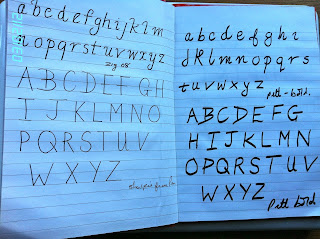 abcdefghijklm
nopqrstuvwxyz
zig 08
ABCDEFGH
IJKLMNO
PQRSTUV
WXYZ
abcdefghi
jklmnopqrs
tuvwxyz Pitt - bold.
ABCDEFG
HIJKLMN
OPQRSTUV
WXYZ
Pitt bold